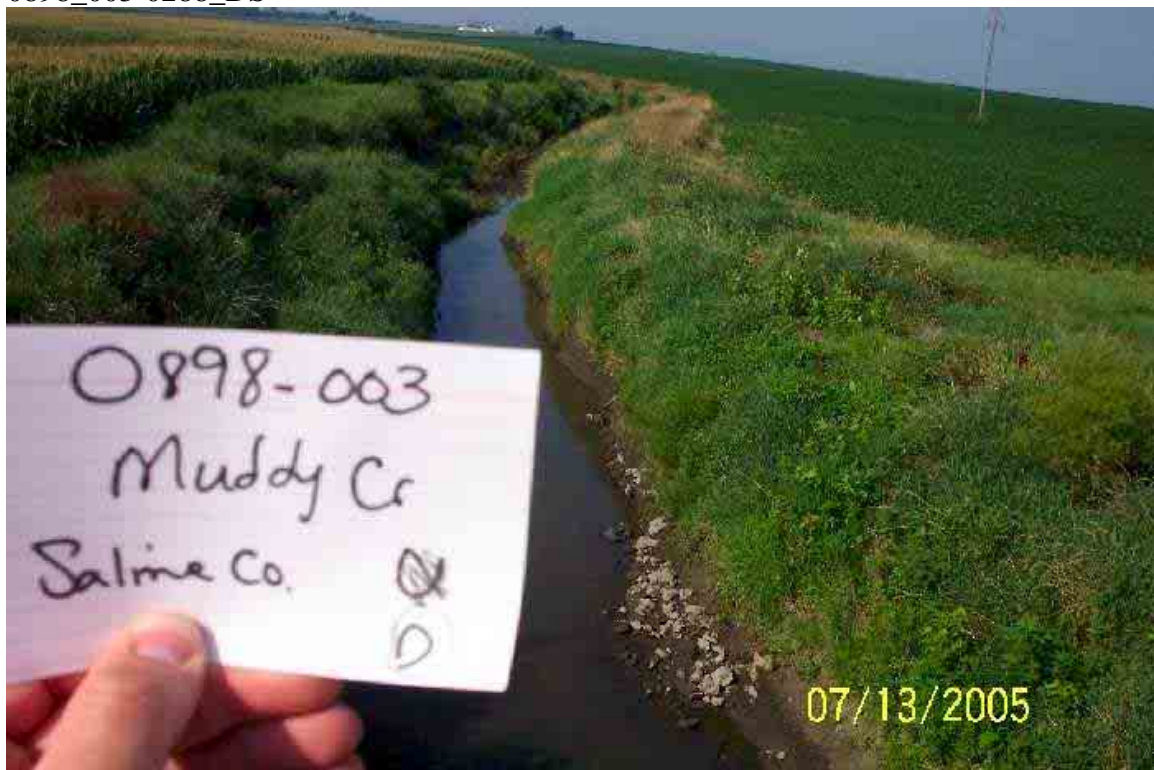 0898-003
Muddy Cr
Saline Co.
D
07/13/2005